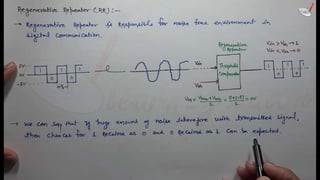 Regenerative Repeater (RR):-
→ Regenerative Repeater is Responsible for noise free environment in
digital Communication.
Regenerative
Repeater
Vin > Vth → 1
Vin < Vth → 0
5V
0V
-5V
1 0 1 0
Vin
Threshold
Comparator
Vth
1 0 1 0
→ We can say that if huge amount of noise interfere with transmitted signal,
then chances for 1 Receive as 0 and 0 Receive as 1 can be expected.